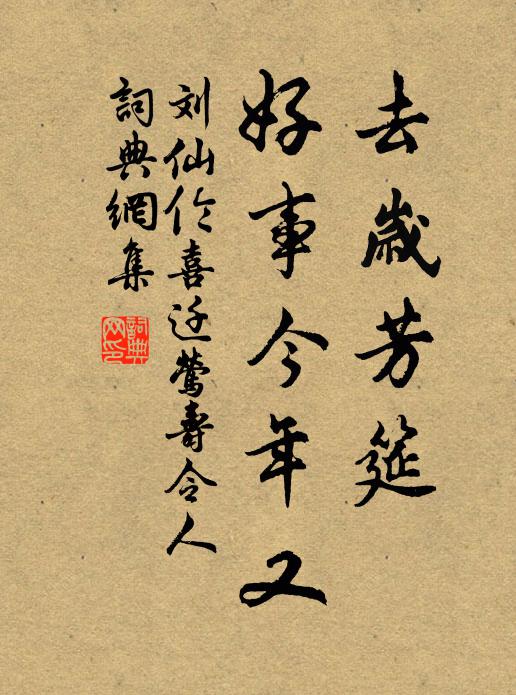 去歲芳筵
好事今年又
刘仙伦喜迁莺壽令人
詞典網集
詞典網印